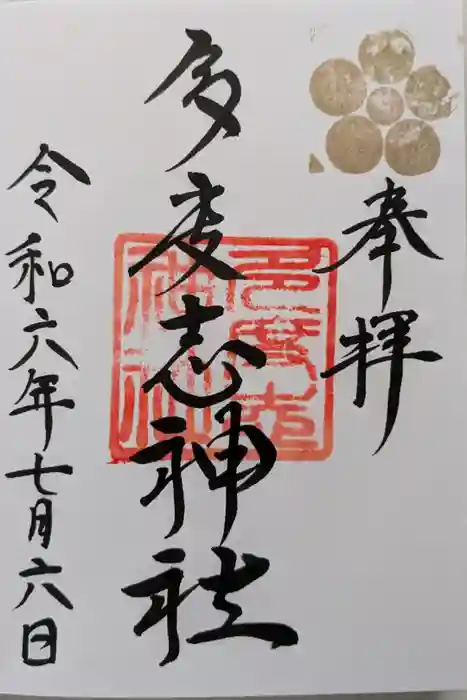 奉拝
多度志神社
多度志神社
令和六年七月六日